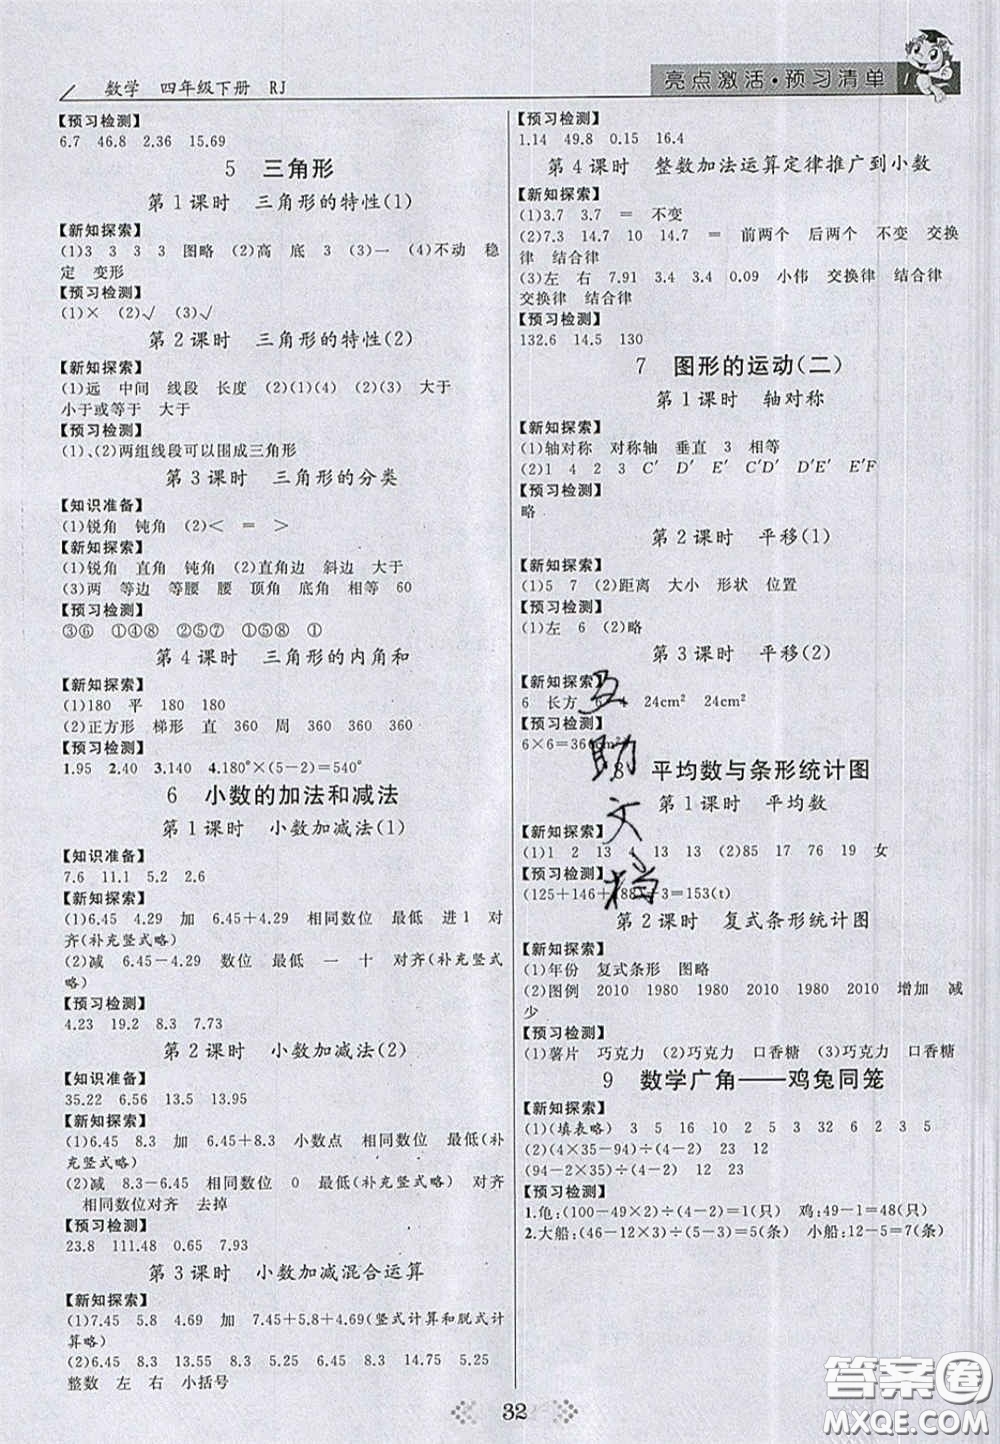 数学 四年级下册 RJ
亮点激活·预习清单
【预习检测】
6.7 46.8 2.36 15.69
5 三角形
第1课时 三角形的特性(1)
【新知探索】
(1)3 3 3 3 图略 (2)高 底 3 (3)一 (4)不动 稳
定 变形
【预习检测】
(1)× (2)√ (3)√
第2课时 三角形的特性(2)
【新知探索】
(1)远 中间 线段 长度 (2)(1)(4) (3)(3) 大于
小于或等于 大于
【预习检测】
(1)、(2)两组线段可以围成三角形
第3课时 三角形的分类
【知识准备】
(1)锐角 钝角 (2)< = >
【新知探索】
(1)锐角 直角 钝角 (2)直角边 斜边 大于
(3)两 等边 等腰 腰 顶角 底角 相等 60
【预习检测】
③⑥ ①④⑧ ②⑤⑦ ①⑤⑧ ①
第4课时 三角形的内角和
【新知探索】
(1)180 平 180 180
(2)正方形 梯形 直 360 周 360 360 360
【预习检测】
1.95 2.40 3.140 4.180°×(5-2)=540°
6 小数的加法和减法
第1课时 小数加减法(1)
【知识准备】
7.6 11.1 5.2 2.6
【新知探索】
(1)6.45 4.29 加 6.45+4.29 相同数位 最低 进1 对
齐(补充竖式略)
(2)减 6.45-4.29 数位 最低 一 十 对齐(补充竖
式略)
【预习检测】
4.23 19.2 8.3 7.73
第2课时 小数加减法(2)
【知识准备】
35.22 6.56 13.5 13.95
【新知探索】
(1)6.45 8.3 加 6.45+8.3 小数点 相同数位 最低(补
充竖式略)
(2)减 8.3-6.45 相同数位 0 最低(补充竖式略) 对齐
相同数位对齐 去掉
【预习检测】
23.8 111.48 0.65 7.93
第3课时 小数加减混合运算
【新知探索】
(1)7.45 5.8 4.69 加 7.45+5.8+4.69(竖式计算和脱式计
算略)
(2)6.45 8.3 14.75 20.55 6.45 8.3 14.75 5.25
整数 左 右 小括号
【预习检测】
1.14 49.8 0.15 16.4
第4课时 整数加法运算定律推广到小数
【新知探索】
(1)3.7 3.7 = 不变
(2)7.3 14.7 10 14.7 = 前两个 后两个 不变 交换
律 结合律
(3)左 右 7.91 3.4 3.4 0.09 小伟 交换律 结合律
交换律 结合律
【预习检测】
132.6 14.5 130
7 图形的运动(二)
第1课时 轴对称
【新知探索】
(1)轴对称 对称轴 垂直 3 相等
(2)1 4 2 3 C′ D′ E′ C′D′ D′E′ E′F
【预习检测】
略
第2课时 平移(1)
【新知探索】
(1)5 7 (2)距离 大小 形状 位置
【预习检测】
(1)左 6 (2)略
第3课时 平移(2)
【新知探索】
6 长方 6 4 24cm² 24cm²
【预习检测】
6×6=36(cm²)
8 平均数与条形统计图
第1课时 平均数
【新知探索】
(1)1 2 13 4 13 13 (2)85 17 76 19 女
【预习检测】
(125+146+188)÷3=153(t)
第2课时 复式条形统计图
【新知探索】
(1)年份 复式条形 图略
(2)图例 2010 1980 1980 2010 1980 2010 增加 减
少
【预习检测】
(1)薯片 巧克力 (2)巧克力 口香糖 (3)巧克力 口香糖
9 数学广角——鸡兔同笼
【新知探索】
(1)(填表略) 3 5 16 10 2 5 3 32 6 2 3 5
(2)(4×35-94)÷(4-2) 23 12
(94-2×35)÷(4-2) 12 23
【预习检测】
1.龟:(100-49×2)÷(4-2)=1(只) 鸡:49-1=48(只)
2.大船:(46-12×3)÷(5-3)=5(条) 小船:12-5=7(条)
互助文档
32
答案圈
MXQE.COM